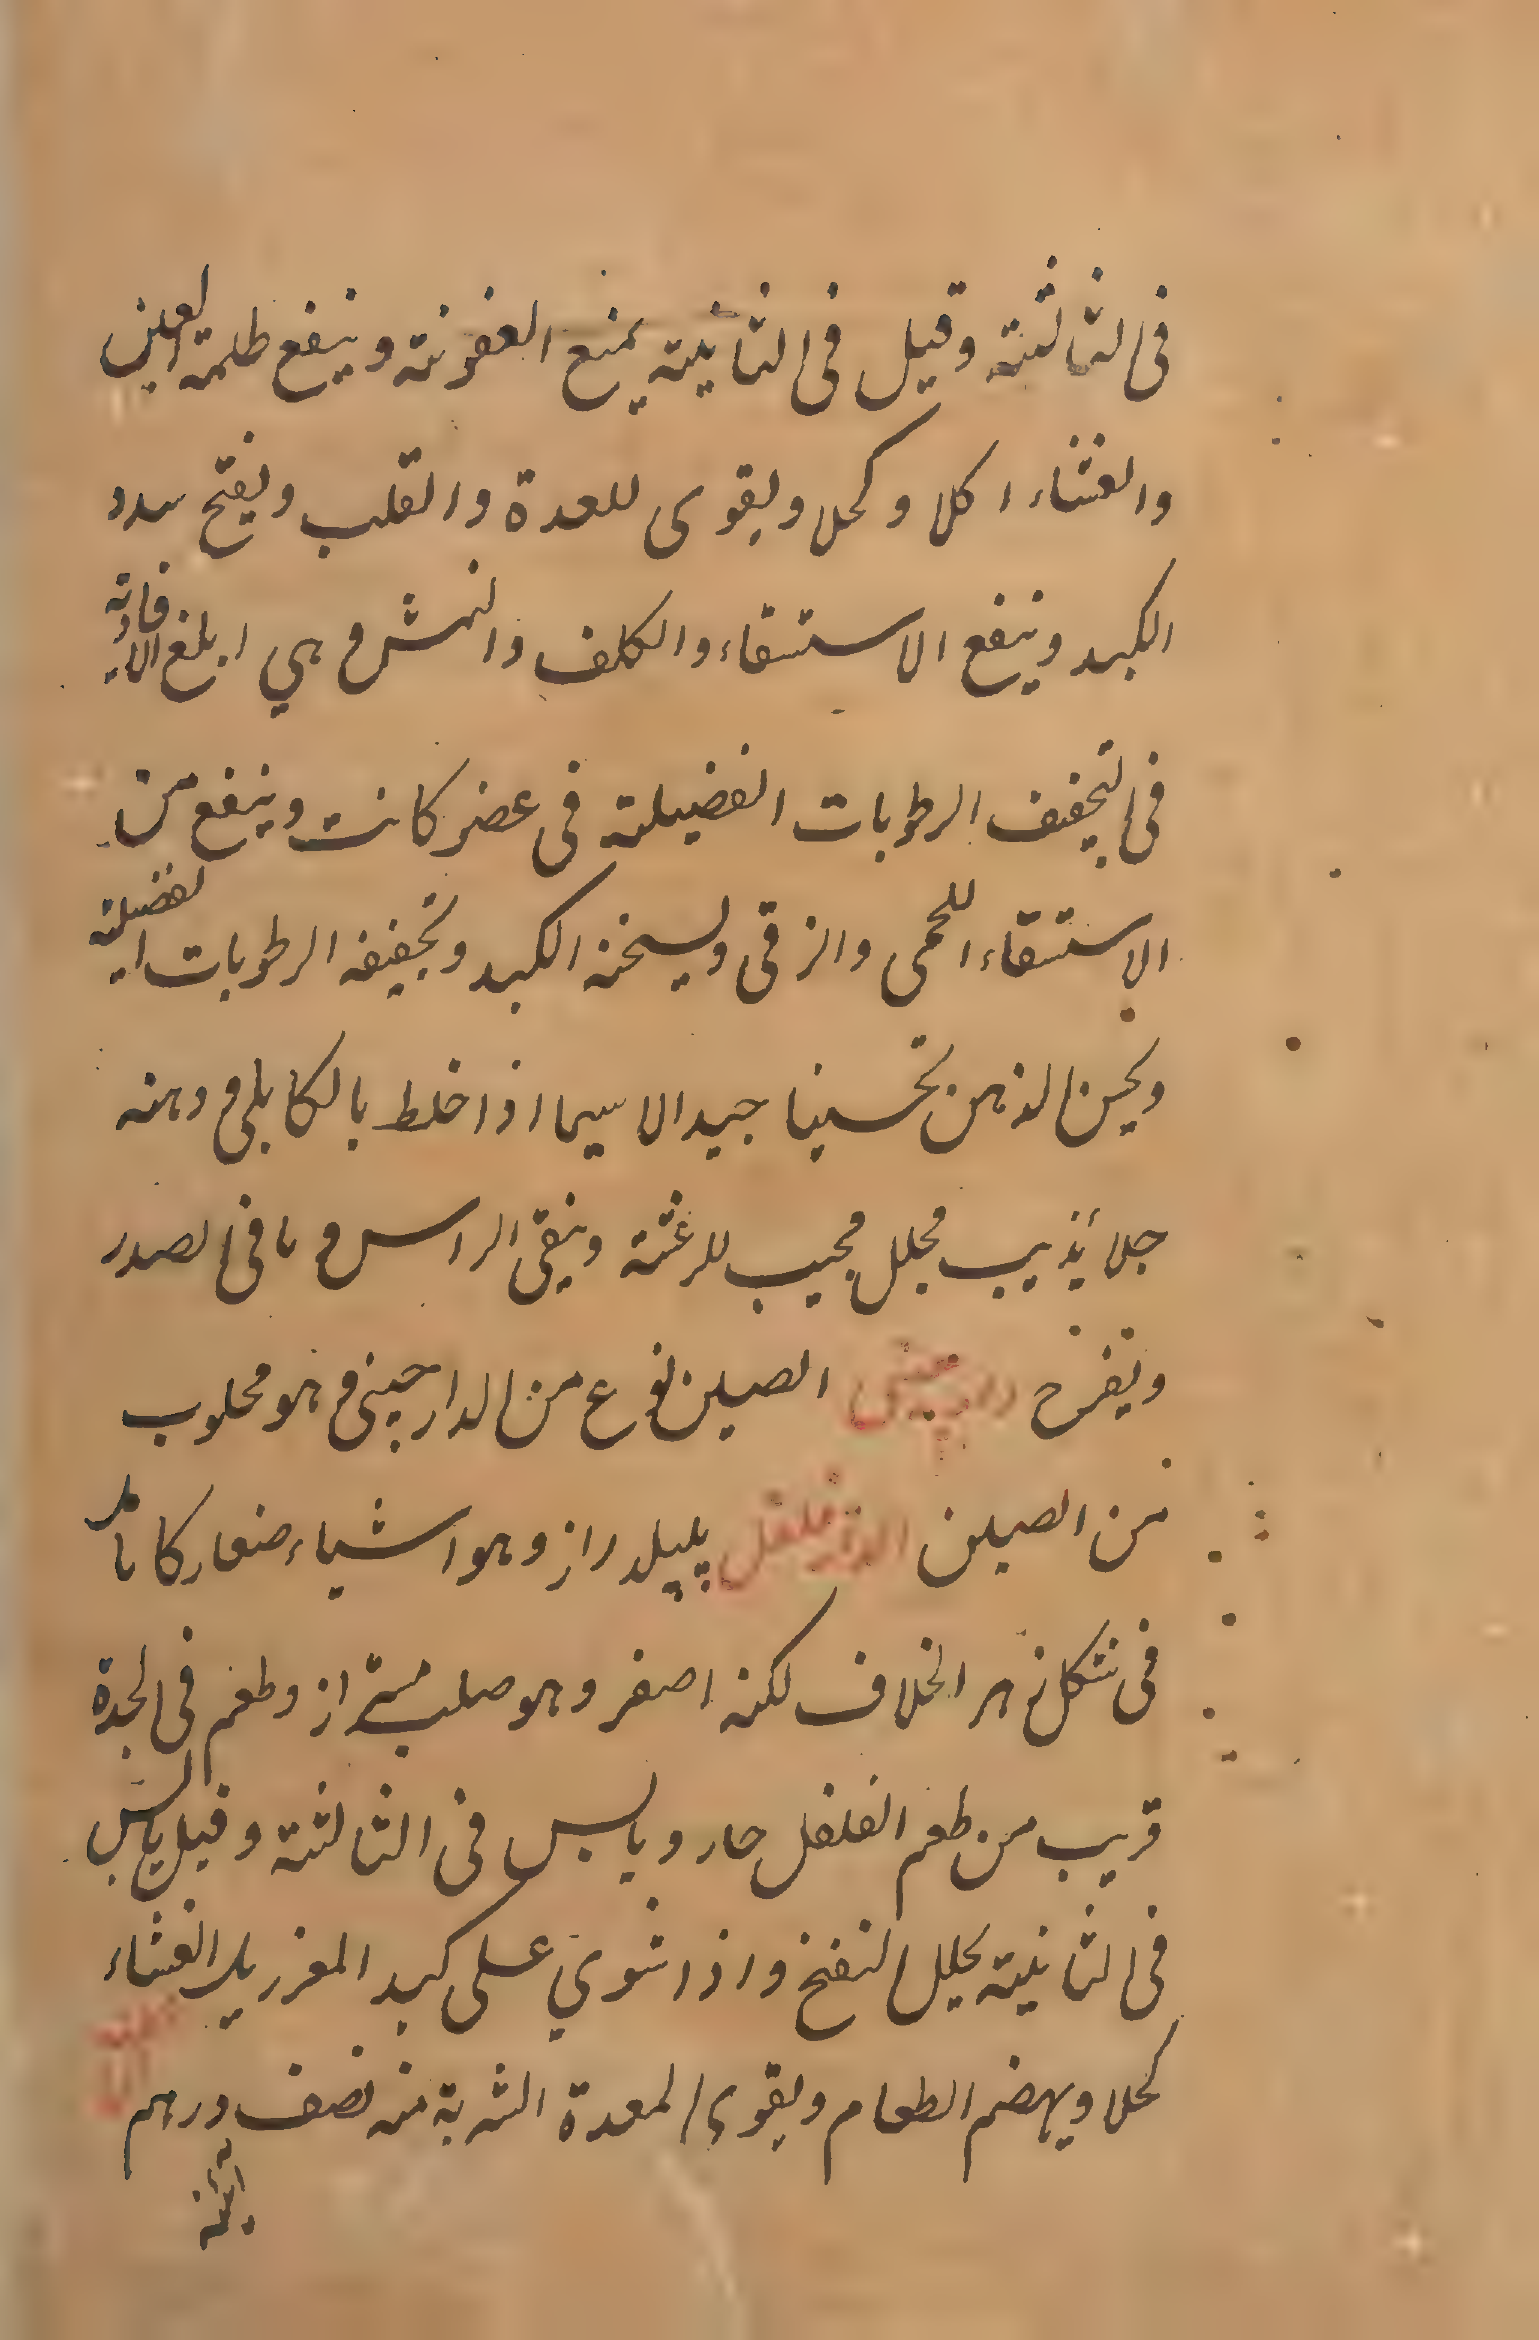 فى الثالثة وقيل فى الثانية يمنع العفونة وينفع ظلمة العين
والغشاء اكلا وكحلا ويقوى المعدة والقلب ويفتح سدد
الكبد وينفع الاستسقاء والكلف والنمش وهي ابلغ الافاوية
فى التجفيف الرطوبات الفضيلة فى عضو كانت وينفع من
الاستسقاء اللحمى والزقى وليسخنه الكبد وتجفيفه الرطوبات الفضيلة
ويحسن الذهن تحسينا جيدا لاسيما اذا خلط بالكابلى ودهنه
جلا يذيب محلل مجيب للرعشة وينقى الراس وما فى الصدر
ويفرح دارچينى الصين نوع من الدارچينى وهو مجلوب
من الصين الدار فلفل پيپلدراز وهو اشياء صغار كانامل
فى شكل زهر الخلاف لكنه اصفر وهو صلب وطعم فى الحدة
قريب من طعم الفلفل حار ويابس فى الثالثة وقيل يابس
فى الثانية يحلل النفخ واذا شوي على كبد المعز يزيل الغشاء
كحلا ويهضم الطعام ويقوى المعدة الشربة منه نصف درهم